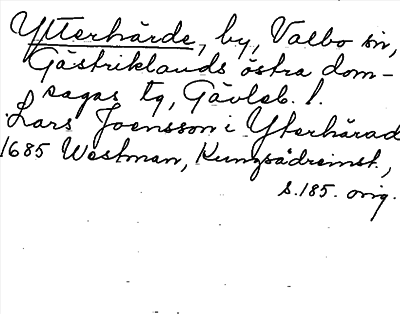 Ytterhärde, by, Valbo sn,
Gästriklands östra dom-
sagas tg, Gävleb. l.
Lars Joensson i Ytterhärad
1685 Westman, Kungsädreinst.,
s. 185. orig.